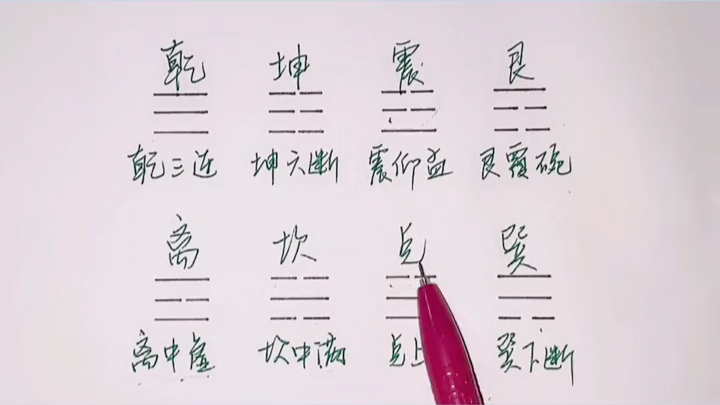 乾 坤 震 艮
乾三连 坤六断 震仰盂 艮覆碗
离 坎 兑 巽
离中虚 坎中满 兑上 巽下断